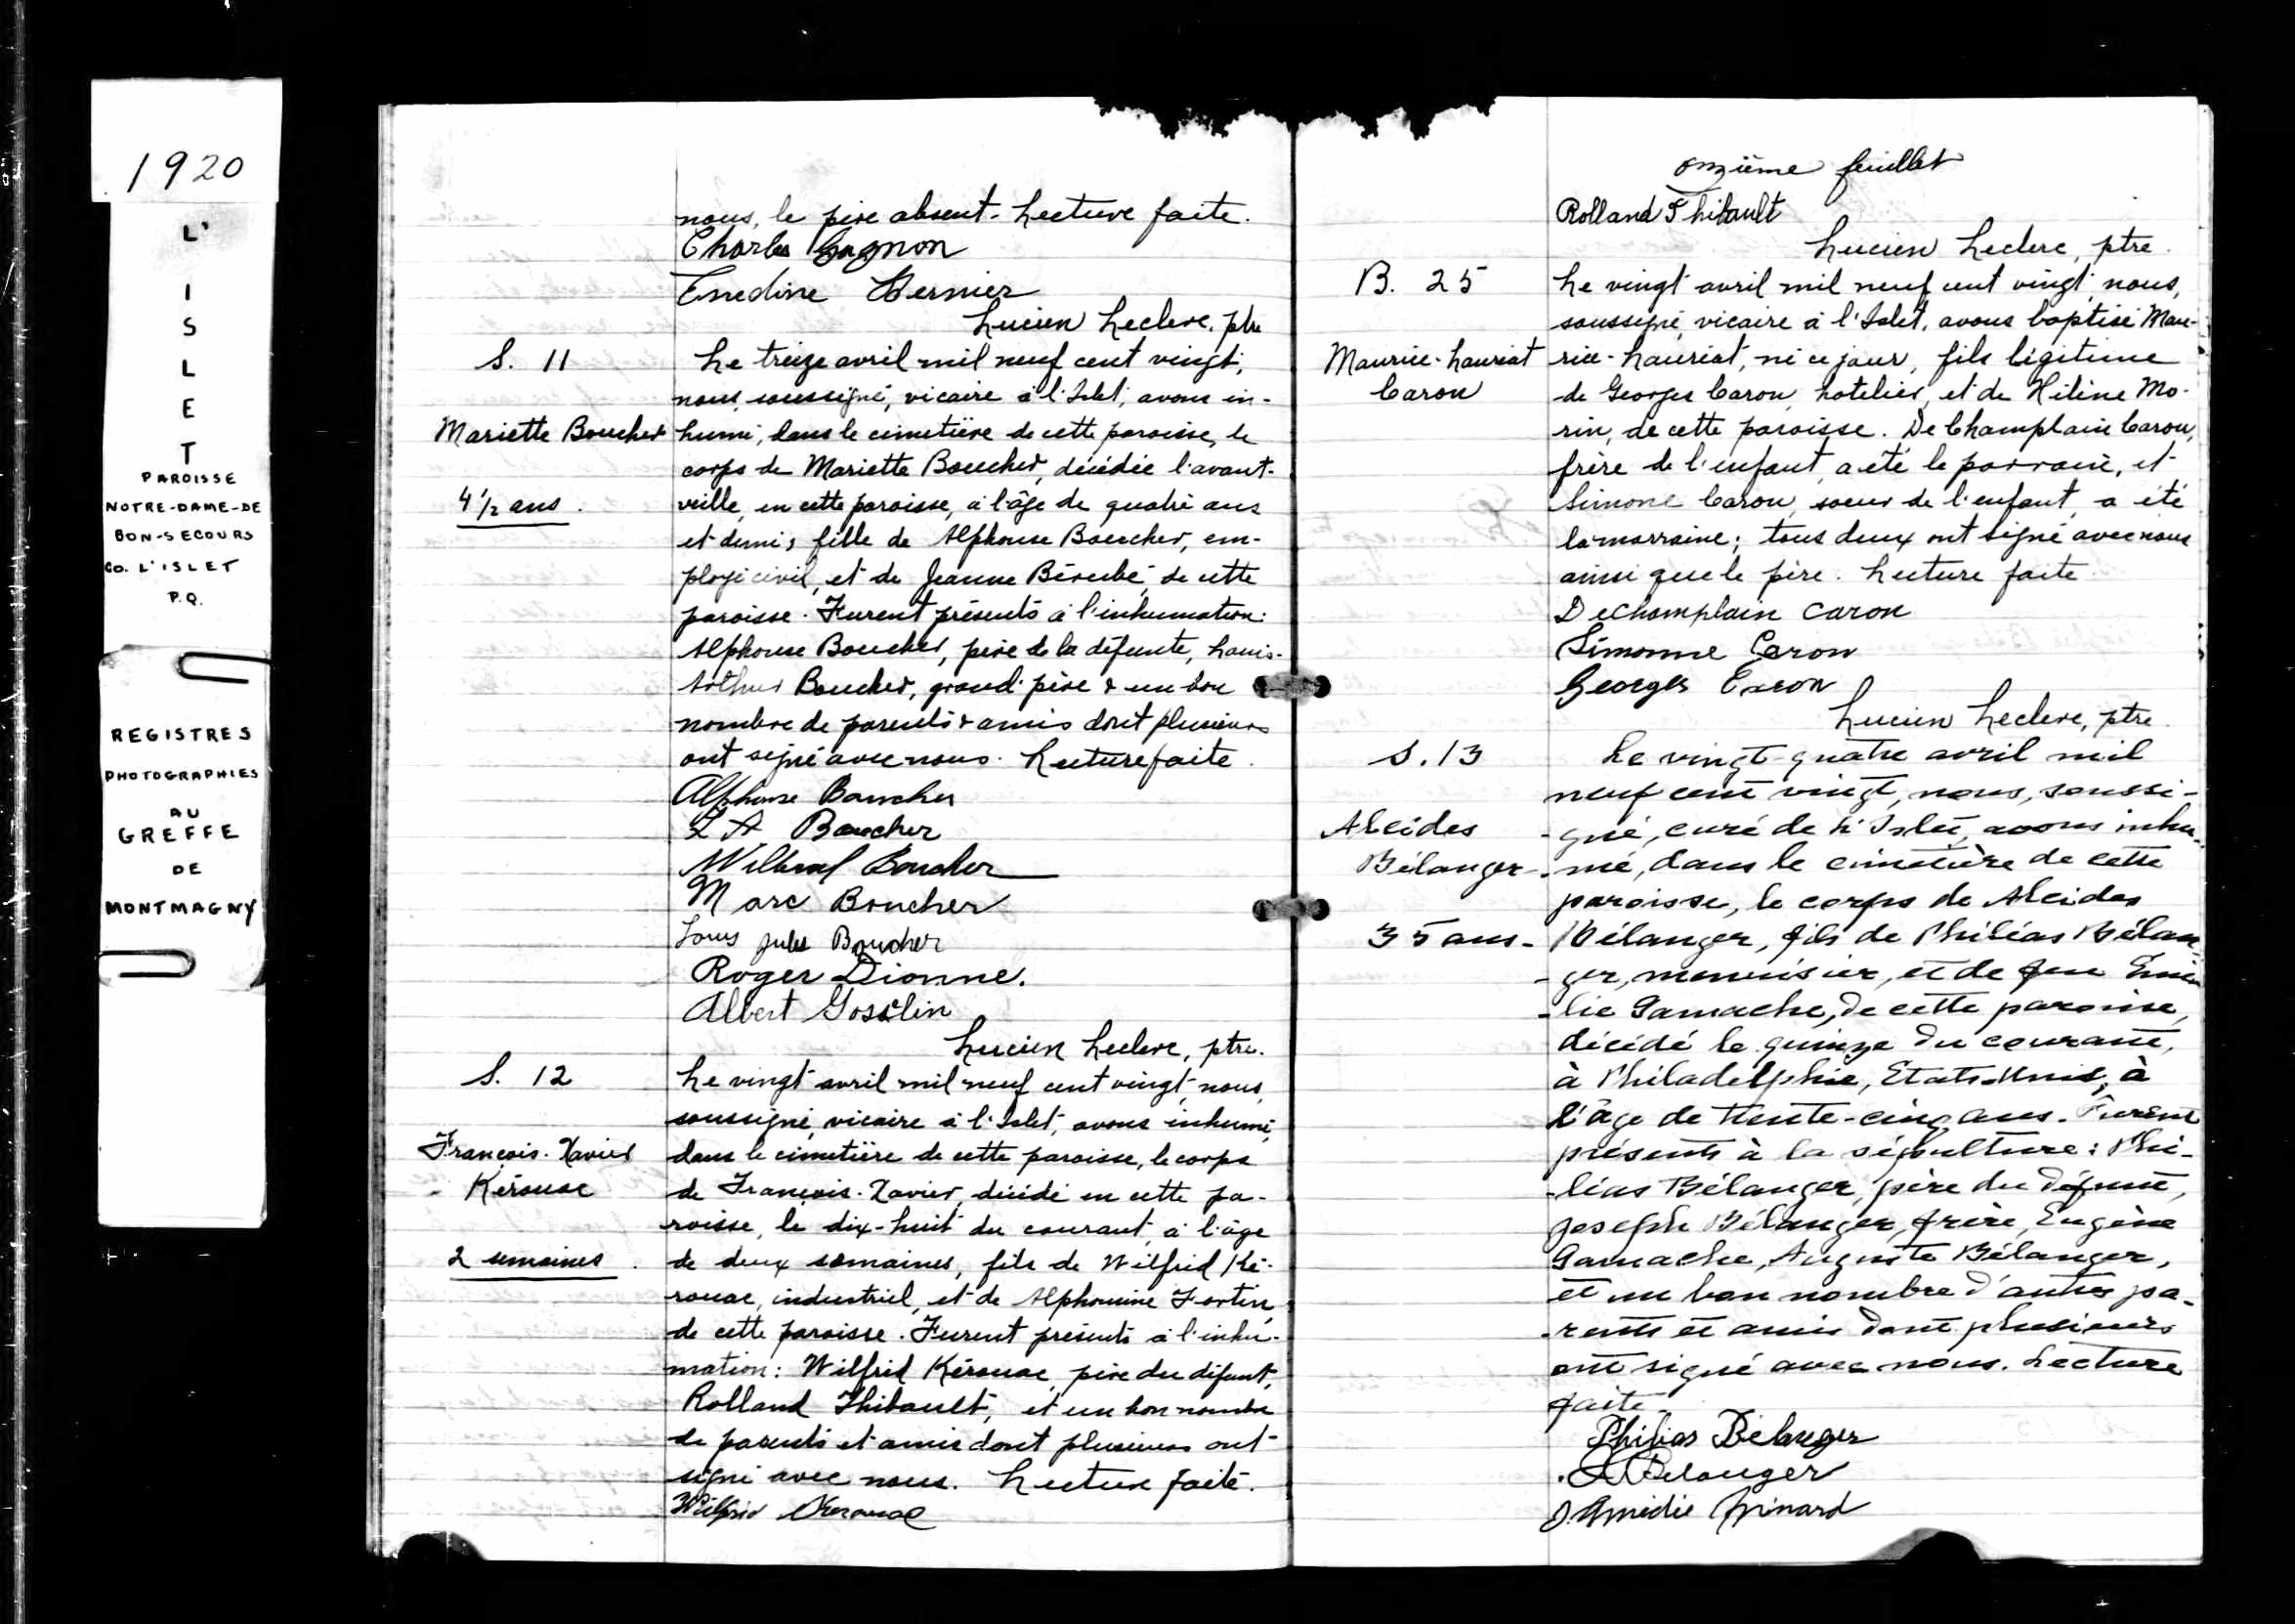 1920
L'
I
S
L
E
T
PAROISSE
NOTRE-DAME-DE
BON-SECOURS
Co. L'ISLET
P.Q.
REGISTRES
PHOTOGRAPHIES
AU
GREFFE
DE
MONTMAGNY
nous, le père absent. Lecture faite.
Charles Gagnon
Enedine Bernier
Lucien Leclerc, ptre
S. 11
Le treize avril mil neuf cent vingt,
nous, soussigné, vicaire à l'Islet, avons in-
Mariette Boucher
humé, dans le cimetière de cette paroisse, le
corps de Mariette Boucher, décédée l'avant-
4 1/2 ans.
veille, en cette paroisse, à l'âge de quatre ans
et demi, fille de Alphonse Boucher, em-
ployé civil, et de Jeanne Bérubé, de cette
paroisse. Furent présents à l'inhumation:
Alphonse Boucher, père de la défunte, Louis-
Arthur Boucher, grand-père & un bon
nombre de parents & amis dont plusieurs
ont signé avec nous. Lecture faite.
Alphonse Boucher
L A Boucher
Boucher
Marc Boucher
Louis Jules Boucher
Roger Dionne.
Albert Gosselin
Lucien Leclerc, ptre.
S. 12
Le vingt avril mil neuf cent vingt, nous,
soussigné, vicaire à l'Islet, avons inhumé,
François-Xavier
dans le cimetière de cette paroisse, le corps
Kérouac
de François-Xavier, décédé en cette pa-
roisse, le dix-huit du courant, à l'âge
2 semaines.
de deux semaines, fils de Wilfrid Ké-
rouac, industriel, et de Alphonsine Fortin,
de cette paroisse. Furent présents à l'inhu-
mation: Wilfrid Kérouac, père du défunt,
Rolland Thibault, et un bon nombre
de parents et amis dont plusieurs ont
signé avec nous. Lecture faite.
Wilfrid Kerouac
onzième feuillet
Rolland Thibault
Lucien Leclerc, ptre.
B. 25
Le vingt avril mil neuf cent vingt, nous,
soussigné, vicaire à l'Islet, avons baptisé Mau-
Maurice-Lauriat
rice-Lauriat, né ce jour, fils légitime
Caron
de Georges Caron, hotelier, et de Hélène Mo-
rin, de cette paroisse. DeChamplain Caron,
frère de l'enfant, a été le parrain, et
Simone Caron, soeur de l'enfant, a été
la marraine; tous deux ont signé avec nous
ainsi que le père. Lecture faite.
Dechamplain Caron
Simonne Caron
Georges Caron
Lucien Leclerc, ptre.
S. 13
Le vingt-quatre avril mil
neuf cent vingt, nous, soussi-
Alcides
-gné, curé de L'Islet, avons inhu-
Bélanger-
-mé, dans le cimetière de cette
paroisse, le corps de Alcides
35 ans-
Bélanger, fils de Philéas Bélan-
-ger, menuisier, et de feu Emi-
-lie Gamache, de cette paroisse,
décédé le quinze du courant,
à Philadelphie, Etats-Unis, à
l'âge de trente-cinq ans. Furent
présents à la sépulture: Phi-
-léas Bélanger, père du défunt,
Joseph Bélanger, frère, Eugène
Gamache, Auguste Bélanger,
et un bon nombre d'autres pa-
-rents et amis dont plusieurs
ont signé avec nous. Lecture
faite-
Philias Bélanger
A Belanger
J. Amédée